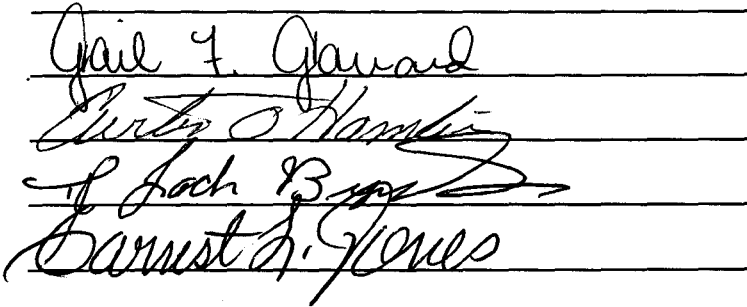 Gail F. Gavard
Curtis O Hamlin
Loch
Earnest L. Jones